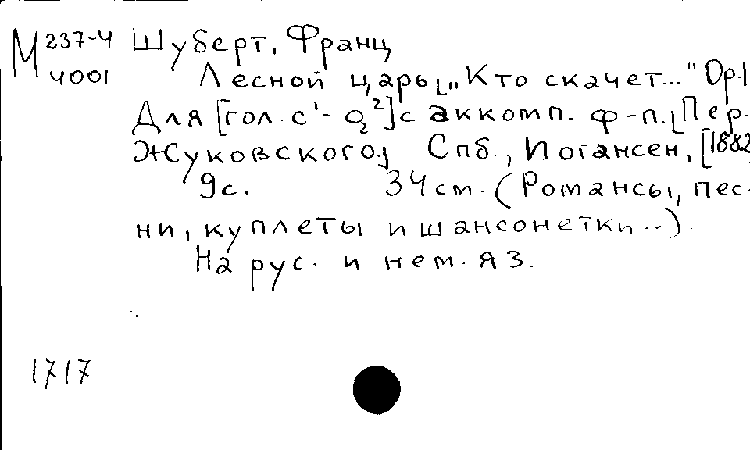 М 237-4 Шуберт, Франц
4001 Лесной царь „Кто скачет..." Op.1
Для [гол. c¹ - g²] с аккомп. ф-п. [Пер.
Жуковского] Спб., Иогансен, [1882
9с. 34 см. (Романсы, пес-
ни, куплеты и шансонетки...).
На рус. и нем. яз.
1717